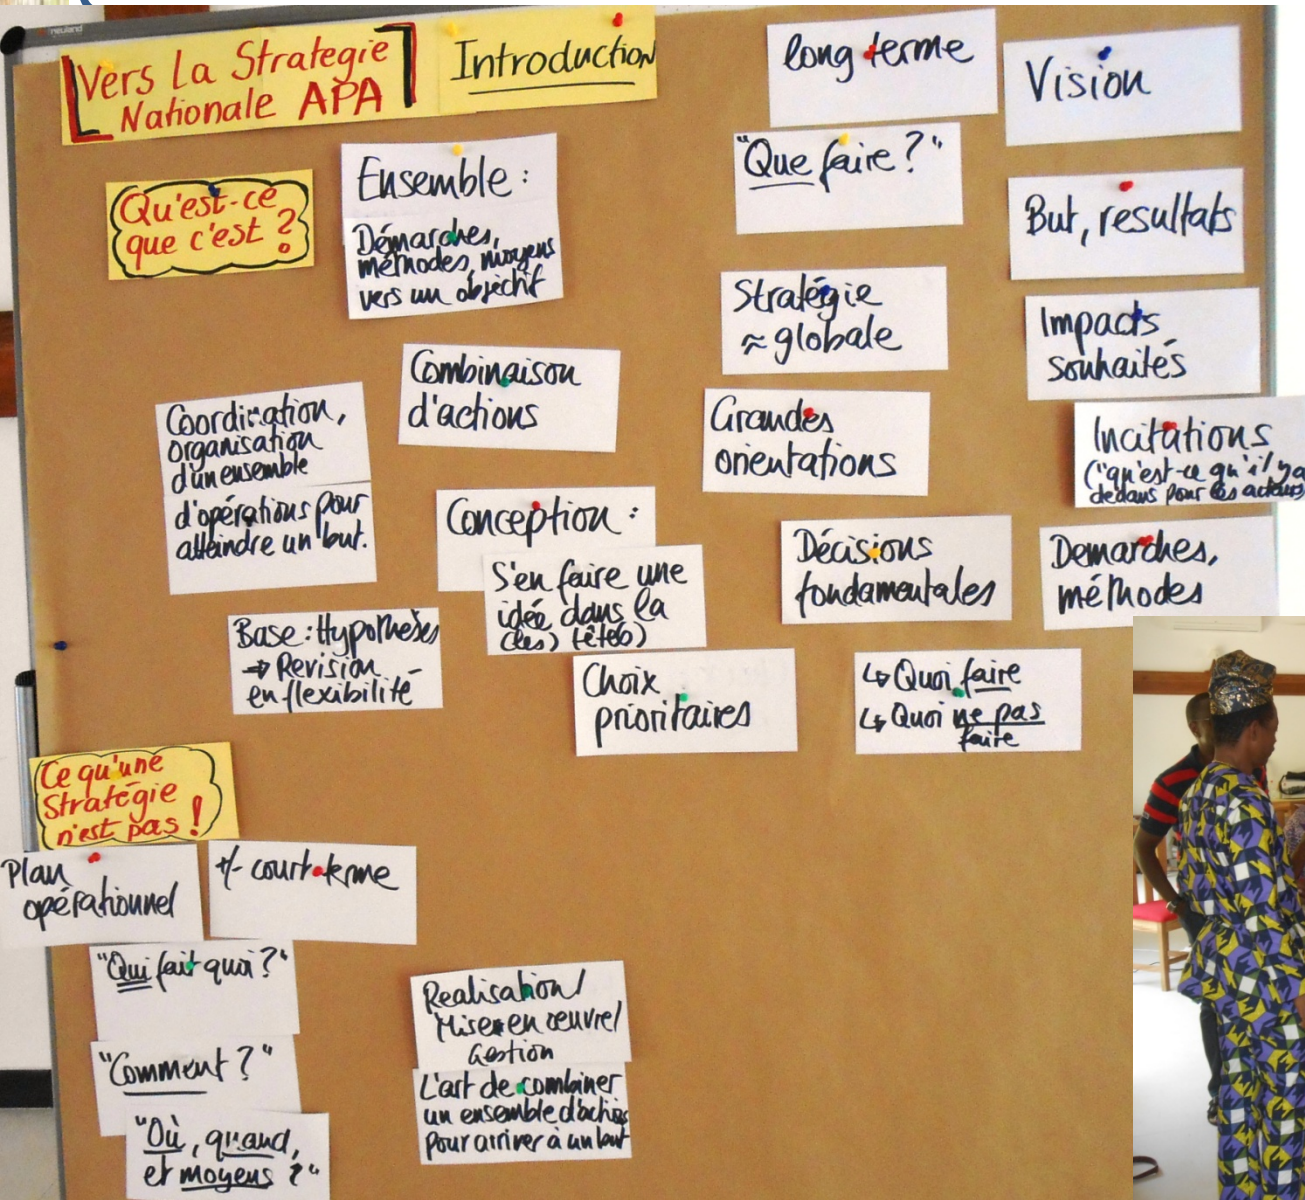 neuland
Vers La Strategie
Nationale APA
Introduction
Qu'est-ce
que c'est ?
Ensemble :
Démarches,
méthodes, moyens
vers un objectif
Combinaison
d'actions
Coordination,
organisation
d'un ensemble
d'opérations pour
atteindre un but.
Conception :
S'en faire une
idée dans la
(les) tête(s)
Base : Hypothèses
⇒ Revision
en flexibilité
Choix
prioritaires
long terme
"Que faire ?"
Stratégie
≈ globale
Grandes
orientations
Décisions
fondamentales
↳ Quoi faire
↳ Quoi ne pas
faire
Vision
But, resultats
Impacts
souhaités
Incitations
("qu'est-ce qu'il y a
dedans pour les acteurs
Demarches,
méthodes
Ce qu'une
Stratégie
n'est pas !
Plan
opérationnel
+/- court terme
"Qui fait quoi ?"
"Comment ? "
"Où, quand,
et moyens ? "
Realisation/
Mise en œuvre/
Gestion
L'art de combiner
un ensemble d'actions
pour arriver à un but